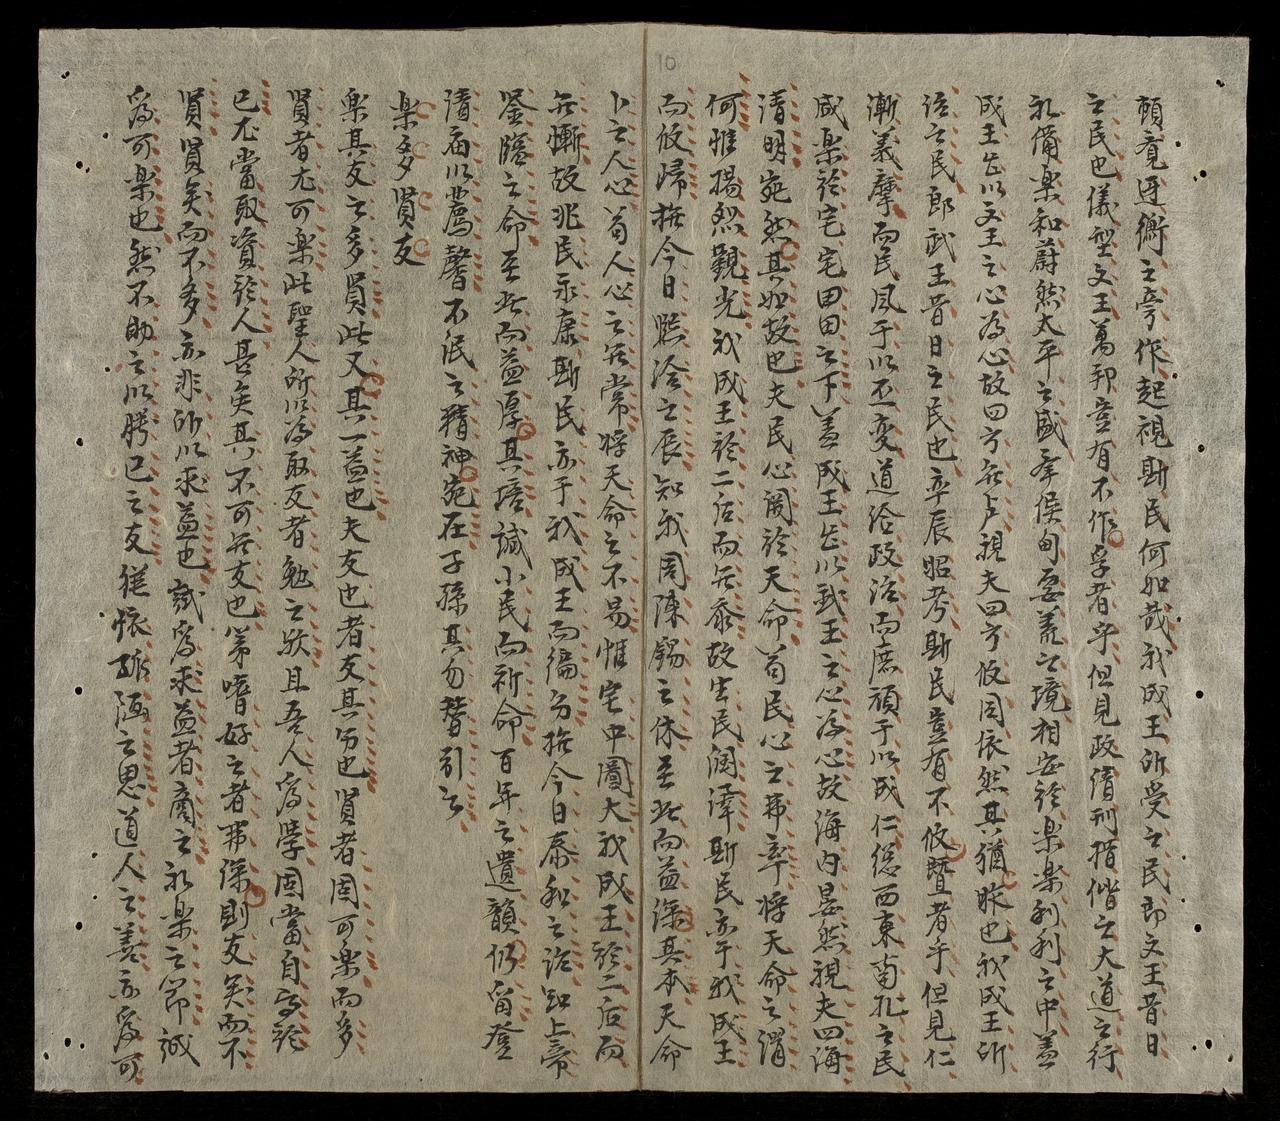 頼覔迓衡之旁作起視斯民何如哉我成王所受之民即文王昔日
之民也儀型文王萬邦豈有不作孚者乎但見政清刑措偕之大道之行
礼備楽和蔚然太平之盛孝侯甸要荒之境相安於楽楽利利之中盖
成王以文王之心為心故四方無虞視夫四方攸同依然其猶昨也我成王所
誥之民即武王昔日之民也率辰昭考斯民豈有不攸曁者乎但見仁
漸義摩而民風于以丕变道洽政治而庶頑于以成仁緫西東南北之民
咸楽於宅宅田田之下盖成王以武王之心為心故海内晏然視夫四海
清明宛然其如故也夫民心関於天命苟民心之弗率將天命之謂
何惟揚烈觀光我成王於二后而無忝故生民潤澤斯民亦于我成王
而攸帰撫今日熙洽之辰知我周陳錫之休至此而益深其本天命
卜之人心苟人心之無常將天命之不易惟宅中圖大我成王於二后而
無慚故兆民永康斯民亦于我成王而徧為撫今日泰和之治知上帝
鑒臨之命至此而益厚其培諴小民而祈命百年之遺韻仍留登
清庙以薦馨不泯之精神宛在子孫其勿替引之
楽多賢友
楽其友之多賢此又其一益也夫友也者友其为也賢者固可楽而多
賢者尤可楽此聖人所以為取友者勉之欤且吾人為學固當自写於
己尤當取資於人甚矣其不可無友也第嗜好之者弗深則友矣而不
賢賢矣而不多亦非所以求益也試為求益者商之礼楽之節誠
為可楽也然不助之以勝己之友從懐酖之思道人之善亦為可